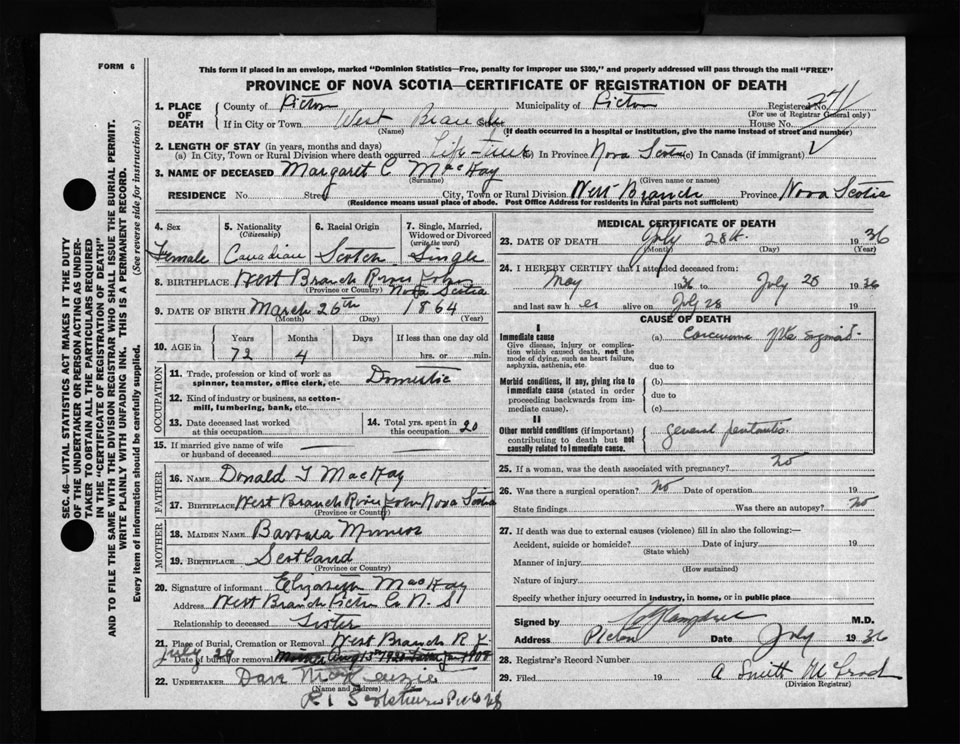 FORM 6
This form if placed in an envelope, marked "Dominion Statistics—Free, penalty for improper use $300," and properly addressed will pass through the mail "FREE"
PROVINCE OF NOVA SCOTIA—CERTIFICATE OF REGISTRATION OF DEATH
1. PLACE OF DEATH County of Pictou Municipality of Pictou Registered No. 271
(For use of Registrar General only)
If in City or Town West Branch Street House No.
(Name) (If death occurred in a hospital or institution, give the name instead of street and number)
2. LENGTH OF STAY (in years, months and days)
(a) In City, Town or Rural Division where death occurred Life-time In Province Nova Scotia (c) In Canada (if immigrant)
3. NAME OF DECEASED Margaret C MacKay
(Surname) (Given name or names)
RESIDENCE No. Street City, Town or Rural Division West Branch Province Nova Scotia
(Residence means usual place of abode. Post Office Address for residents in rural parts not sufficient)
4. Sex Female
5. Nationality (Citizenship) Canadian
6. Racial Origin Scotch
7. Single, Married, Widowed or Divorced (write the word) Single
8. BIRTHPLACE West Branch River John Nova Scotia
(Province or Country)
9. DATE OF BIRTH March 26th 1864
(Month) (Day) (Year)
10. AGE in Years 72 Months 4 Days If less than one day old hrs. or min.
OCCUPATION
11. Trade, profession or kind of work as spinner, teamster, office clerk, etc. Domestic
12. Kind of industry or business, as cotton-mill, lumbering, bank, etc.
13. Date deceased last worked at this occupation
14. Total yrs. spent in this occupation 20
15. If married give name of wife or husband of deceased
FATHER
16. NAME Donald MacKay
17. BIRTHPLACE West Branch River John Nova Scotia
(Province or Country)
MOTHER
18. MAIDEN NAME Barbara Munroe
19. BIRTHPLACE Scotland
(Province or Country)
20. Signature of informant Elizabeth MacKay
Address West Branch Pictou Co N. S
Relationship to deceased Sister
21. Place of Burial, Cremation or Removal West Branch R. J.
Date of burial or removal July 29
22. UNDERTAKER Dave MacKenzie
(Name and address)
R1 Scotsburn Pic Co NS
MEDICAL CERTIFICATE OF DEATH
23. DATE OF DEATH July 28th 1936
(Month) (Day)
24. I HEREBY CERTIFY that I attended deceased from:
May 1936 to July 28 1936
and last saw her alive on July 28
CAUSE OF DEATH
I
Immediate cause
Give disease, injury or complication which caused death, not the mode of dying, such as heart failure, asphyxia, asthenia, etc.
(a) Carcinoma of the sigmoid
due to
Morbid conditions, if any, giving rise to immediate cause (stated in order proceeding backwards from immediate cause).
(b)
due to
(c)
II
Other morbid conditions (if important) contributing to death but not causally related to immediate cause.
general
25. If a woman, was the death associated with pregnancy? no
26. Was there a surgical operation? no Date of operation 19
State findings Was there an autopsy? no
27. If death was due to external causes (violence) fill in also the following:—
Accident, suicide or homicide? Date of injury 19
(State which)
Manner of injury
(How sustained)
Nature of injury
Specify whether injury occurred in industry, in home, or in public place
Signed by M.D.
Address Pictou Date July 1936
28. Registrar's Record Number
29. Filed 19 A Smith McLeod
(Division Registrar)
SEC. 46—VITAL STATISTICS ACT MAKES IT THE DUTY
OF THE UNDERTAKER OR PERSON ACTING AS UNDER-
TAKER TO OBTAIN ALL THE PARTICULARS REQUIRED
IN THE "CERTIFICATE OF REGISTRATION OF DEATH"
AND TO FILE THE SAME WITH THE DIVISION REGISTRAR WHO SHALL ISSUE THE BURIAL PERMIT.
WRITE PLAINLY WITH UNFADING INK. THIS IS A PERMANENT RECORD.
Every item of information should be carefully supplied. (See reverse side for instructions.)